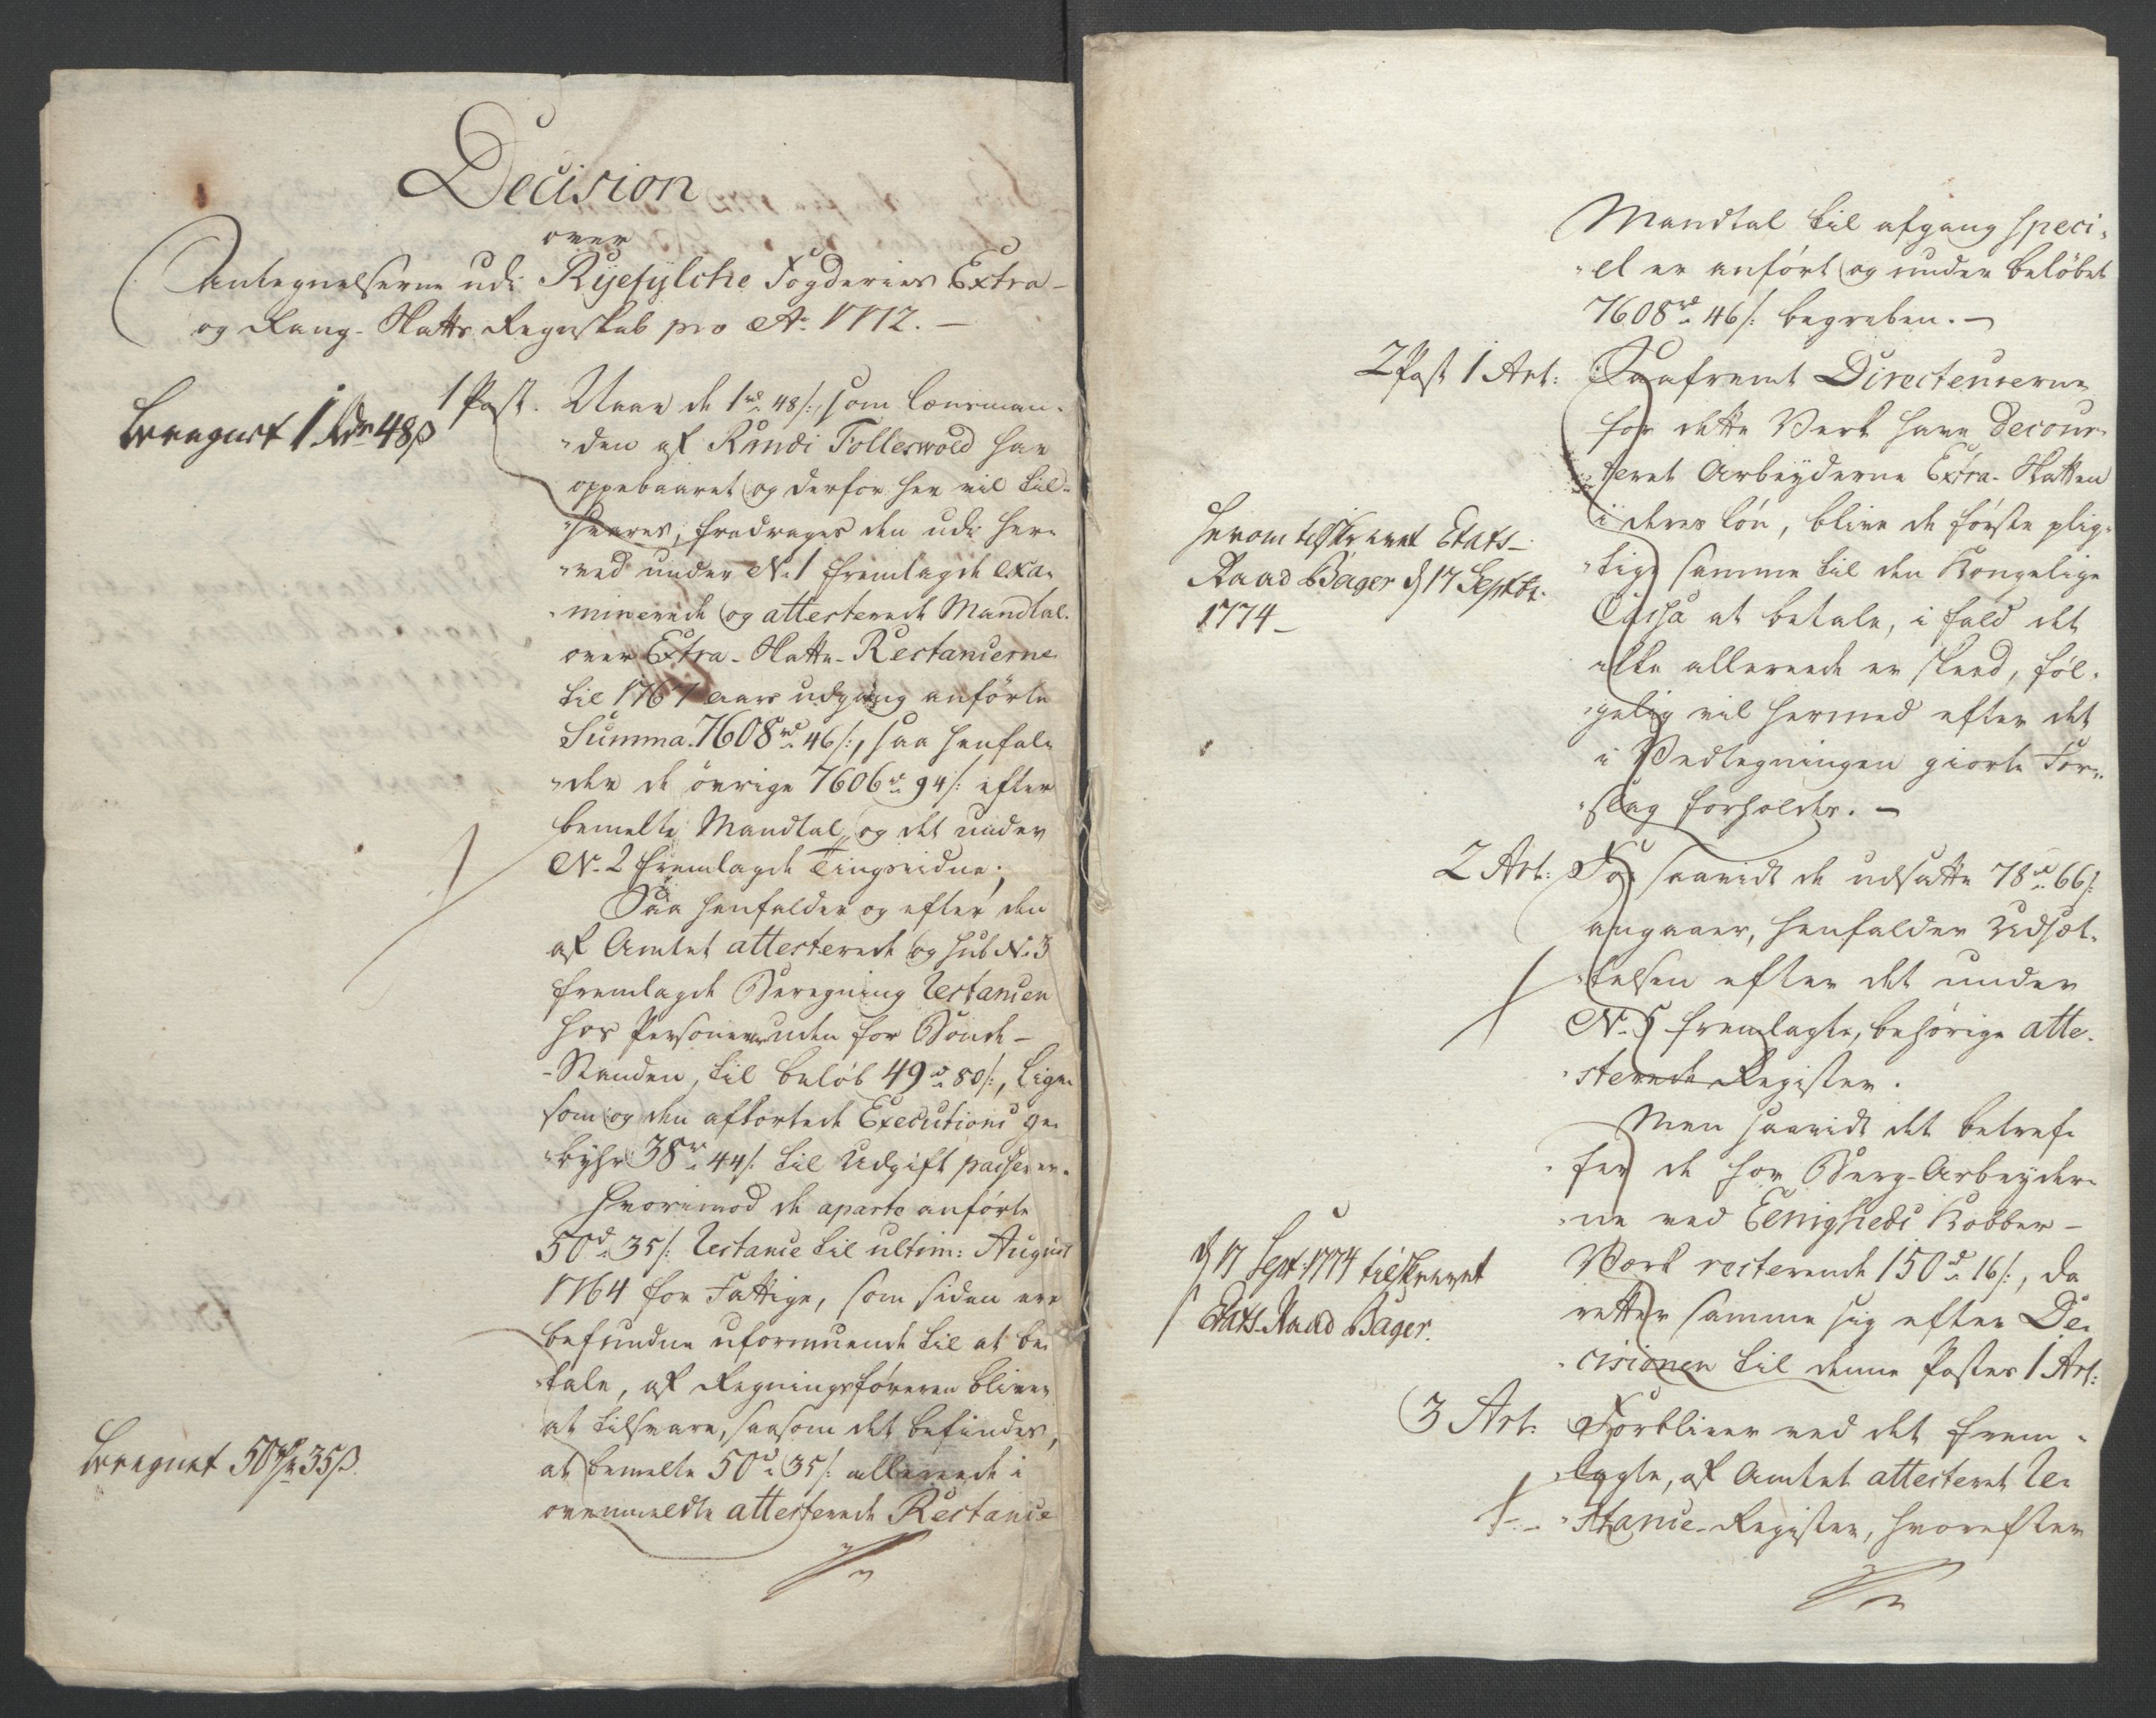 Decision
over
Antegnelserne udi Ryefylche Fogderies Extra-
og Rang-Skatts Regnskab pro Ao 1772. —
Beregnet 1 Rdr 48 ß
1 Post.
Naar de 1 rd 48 s:, som Lensman-
den af Randi Folleswold har
oppebaaret og derfor her vil til-
svares, fradrages den udi her-
ved under No 1 fremlagde exa-
minerede og attesterede Mandtal
over Extra-Skatte-Restancerne
til 1767 aars udgang anførte
Summa 7608 rd 46 s:, saa henfal-
der de øvrige 7606 rd 94 s: efter
bemelte Mandtal og det under
No 2 fremlagde Tingsvidne;
Saa henfalder og efter den
af Amtet attesterede og sub No 3
fremlagde Beregning Restancen
hos Personer uden for Bonde-
-Standen, til beløb 49 rd 80 s:, lige-
som og den afkortede Executions ge-
byhr 38 rd 44 s: til Udgift passerer.
Hvorimod de aparte anførte
50 rd 35 s: Restance til ultim: August
1764 for Fattige, som siden ere
befundne uformuende til at be-
tale, af Regningsføreren bliver
at tilsvare, saasom det befindes,
at bemelte 50 rd 35 s: allerede i
ovenmeldte attesterede Restance
Beregnet 50 rdr 35 ß.
Mandtal til afgang speci-
el er anført og under beløbet
7608 rd 46 s: begreben. —
2 Post 1 Art:
Saafremt Directeurerne
for dette Verk have decour-
teret Arbeyderne Extra-Skatten
i deres løn, blive de første plig-
tige samme til den Kongelige
Cassa at betale, i fald det
ikke allereede er skeed, føl-
gelig vil hermed efter det
i Vedtegningen giorte For-
slag forholdes. —
Herom tilskrevet Etats-
Raad Bager d 17 Septbr.
1774 —
2 Art:
For saavidt de udsatte 78 rd 66 s:
angaaer, henfalder Udsæt-
telsen efter det under
No 5 fremlagte, behørige atte-
sterede Register.
Men saavidt det betref-
fer de for Berg-Arbeyder-
ne ved Eenigheds Kobber-
Værk resterende 150 rd 16 s:, da
retter samme sig efter De-
cisionen til denne Postes 1 Art:
d 17 Sept: 1774 tilskrevet
Etats-Raad Bager.
3 Art:
Forbliver ved det frem-
lagte, af Amtet attesteret Re-
stance-Register, hvorefter